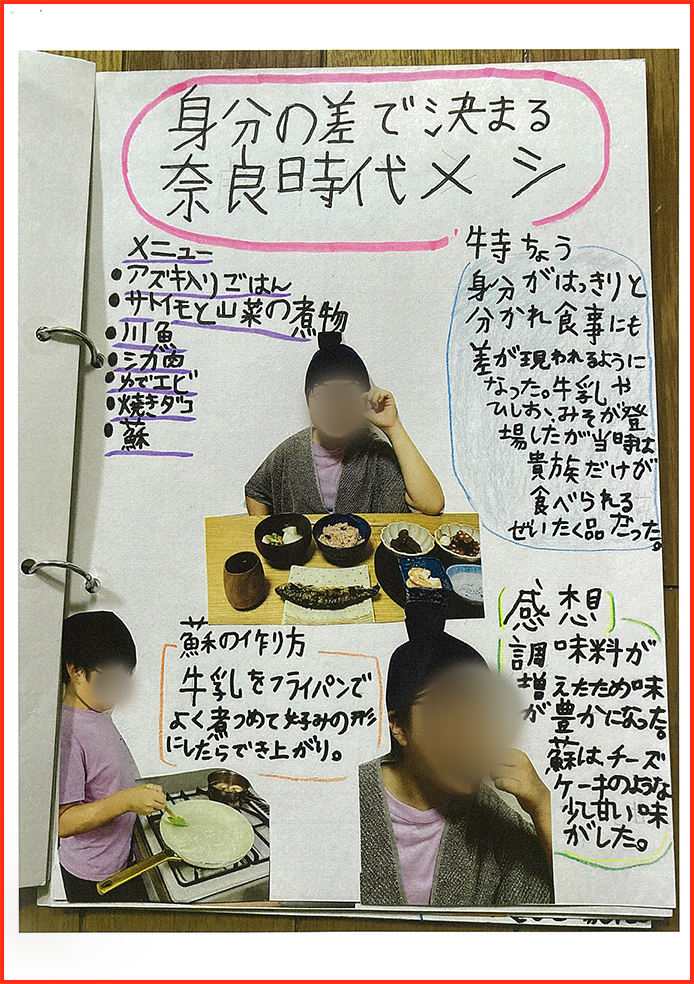 身分の差で決まる
奈良時代メシ
メニュー
●アズキ入りごはん
●サトイモと山菜の煮物
●川魚
●シカ肉
●ゆでエビ
●焼きダコ
●蘇
特ちょう
身分がはっきりと
分かれ食事にも
差が現われるように
なった。牛乳や
ひしお、みそが登
場したが当時は
貴族だけが
食べられる
ぜいたく品だった。
蘇の作り方
牛乳をフライパンで
よく煮つめて好みの形
にしたらでき上がり。
感想
調味料が
増えたため味
が豊かになった。
蘇はチーズ
ケーキのような
少し甘い味
がした。